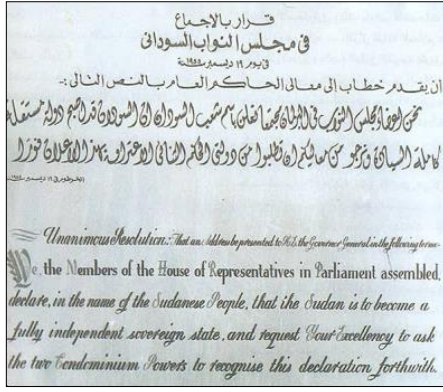 قرار بالإجماع
في مجلس النواب السوداني
في يوم ١٩ ديسمبر ١٩٥٥م
ان يقدم خطاب إلى معالى الحاكم العام بالنص التالى :-
نحن اعضاء مجلس النواب في البرلمان مجتمعاً نعلن باسم شعب السودان ان السودان قد اصبح دولة مستقلة
كاملة السيادة ونرجو من معاليكم ان تطلبوا من دولتى الحكم الثنائى الاعتراف بهذا الاعلان فورا
الخرطوم في ١٩ ديسمبر ١٩٥٥م
Unanimous Resolution:- That an Address be presented to H.E. the Governor General in the following terms:-
We, the Members of the House of Representatives in Parliament assembled,
declare, in the name of the Sudanese People, that the Sudan is to become a
fully independent sovereign state, and request Your Excellency to ask
the two Condominium Powers to recognise this declaration forthwith.